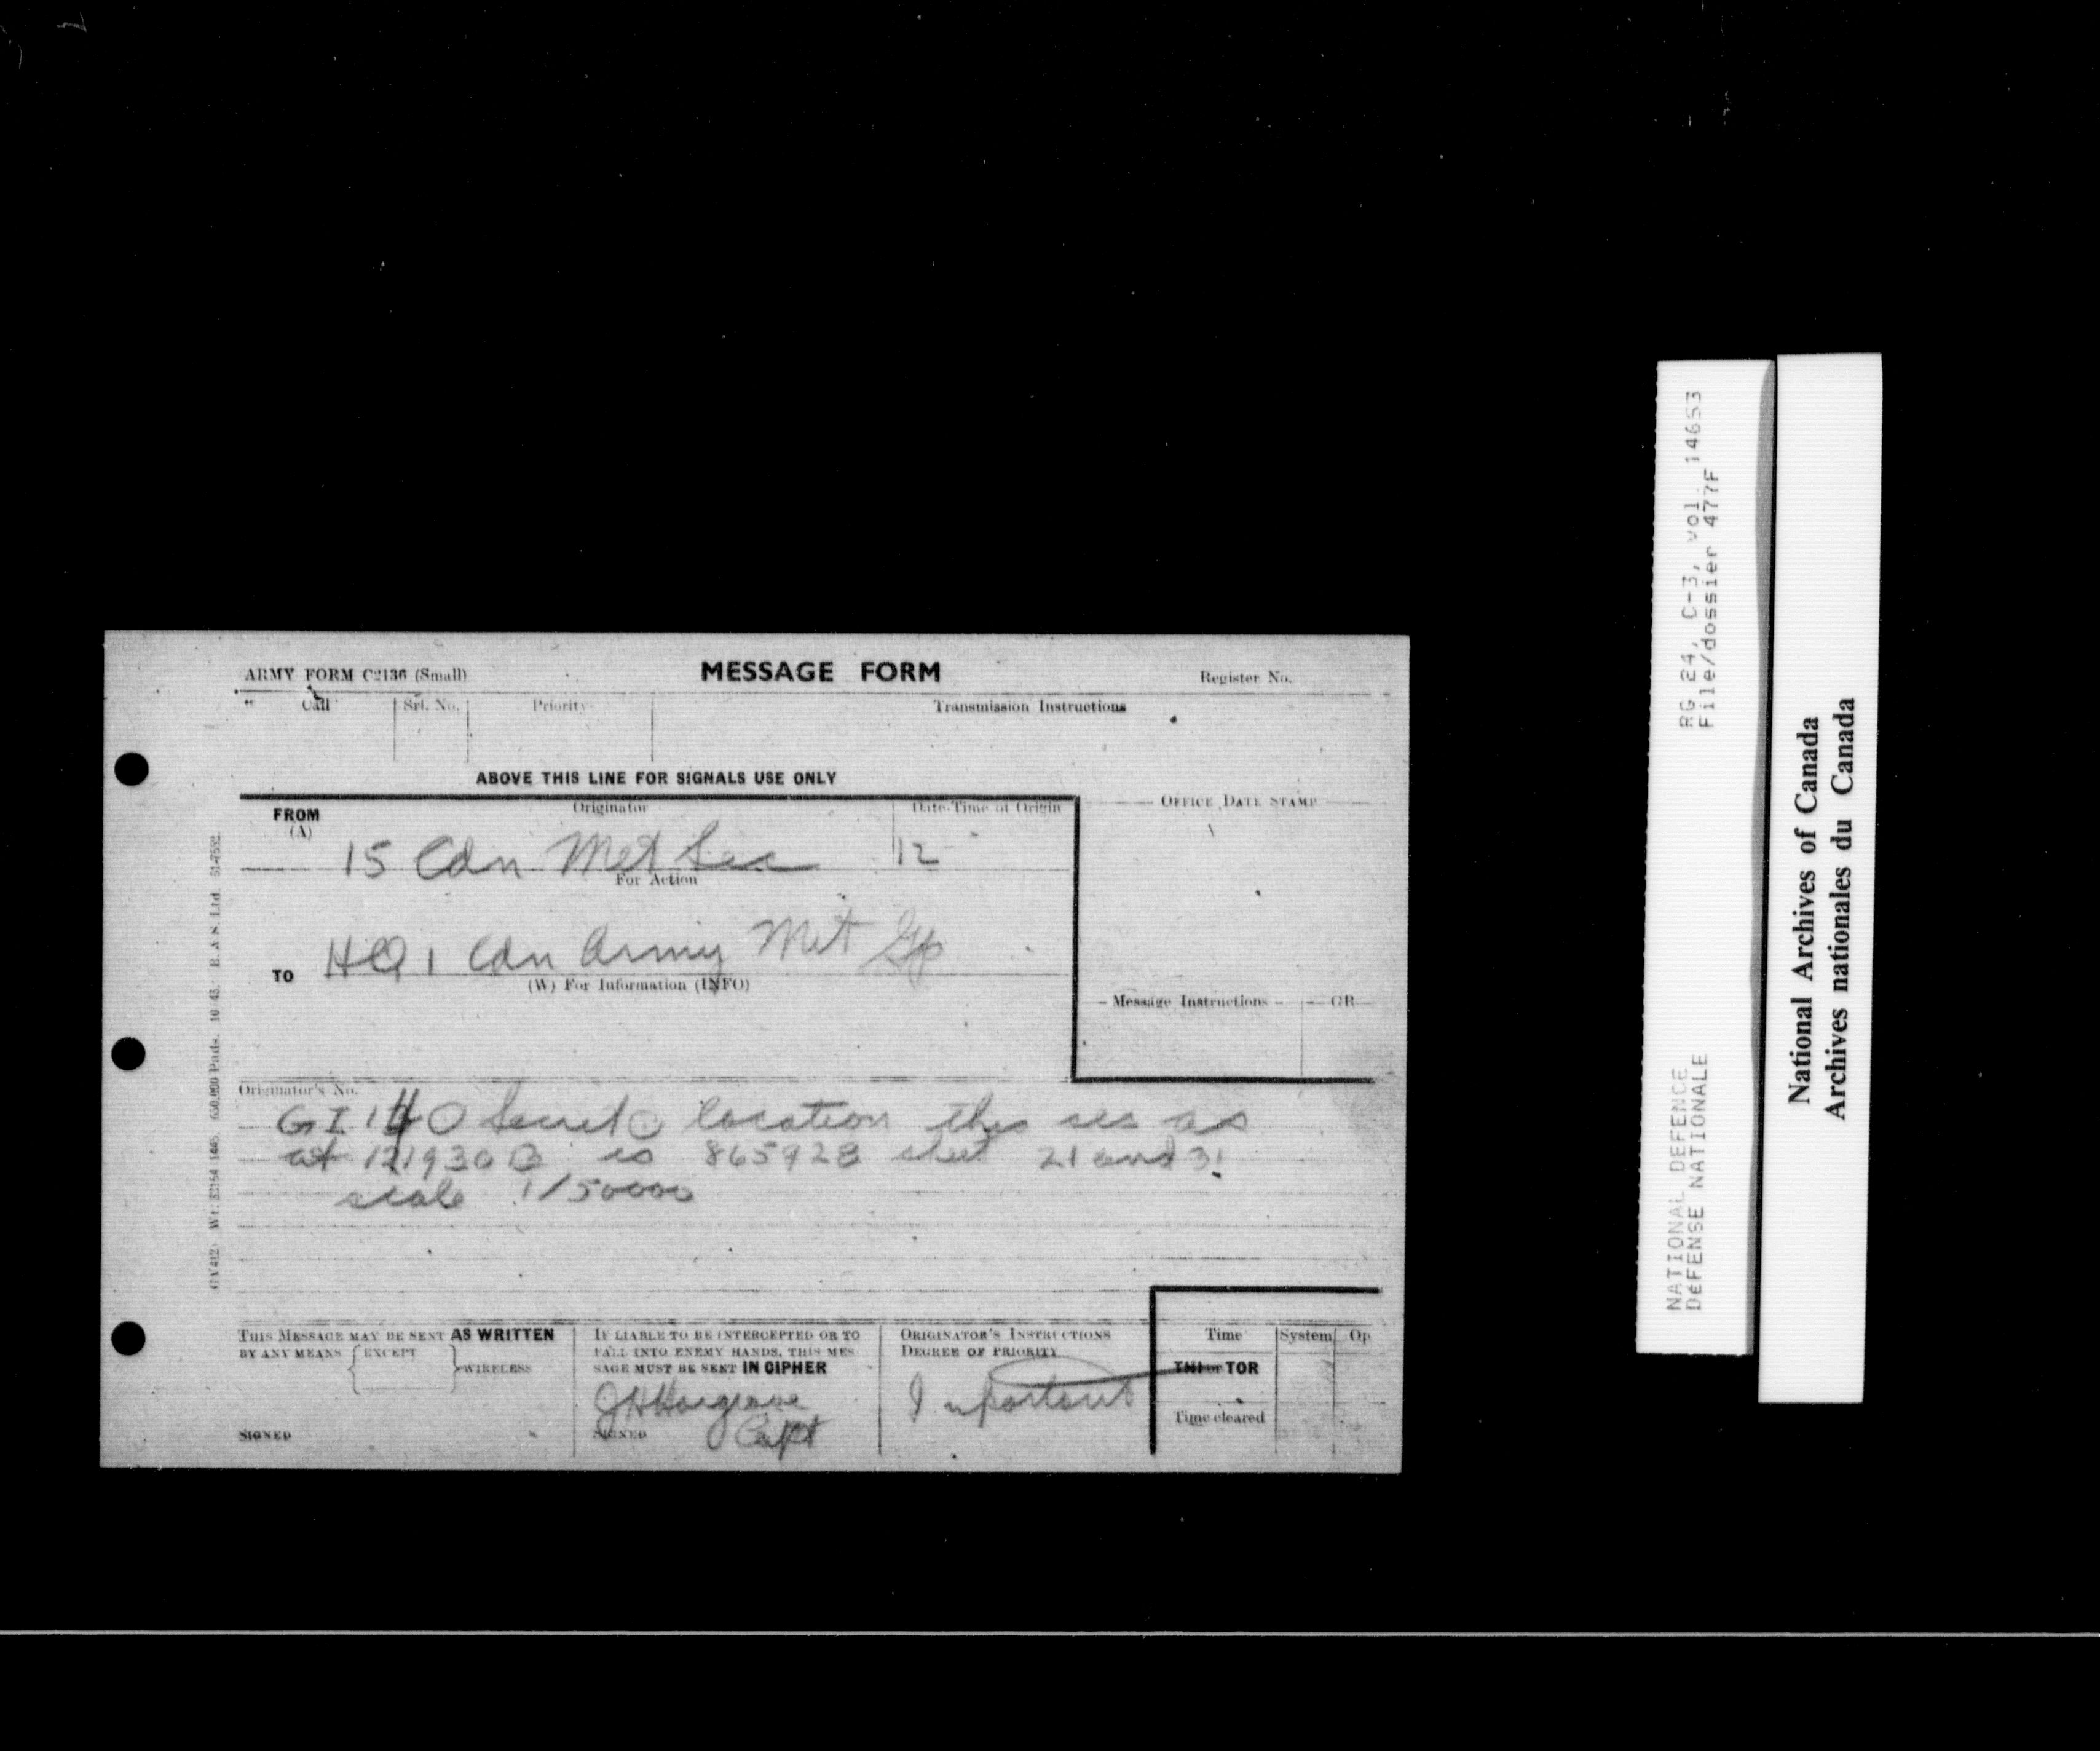 ARMY FORM C2136 (Small)
MESSAGE FORM
Register No.
Call
Srl. No.
Priority
Transmission Instructions
ABOVE THIS LINE FOR SIGNALS USE ONLY
FROM
(A)
Originator
Date-Time of Origin
OFFICE DATE STAMP
15 Cdn Met Sec
12
For Action
TO
HQ 1 Cdn Army Met Gp
(W) For Information (INFO)
Message Instructions
GR
Originator's No.
GI 14 O Secret O location this sec as
at 121930 B is 865928 sheet 21 and 31
scale 1/50000
THIS MESSAGE MAY BE SENT AS WRITTEN
BY ANY MEANS EXCEPT WIRELESS
SIGNED
IF LIABLE TO BE INTERCEPTED OR TO
FALL INTO ENEMY HANDS, THIS MES
SAGE MUST BE SENT IN CIPHER
JH Hargrave
Capt
SIGNED
ORIGINATOR'S INSTRUCTIONS
DEGREE OF PRIORITY
Important
Time
System
Op
THI or TOR
Time cleared
RG 24, C-3, vol. 14653
File/dossier 477F
NATIONAL DEFENCE
DÉFENSE NATIONALE
National Archives of Canada
Archives nationales du Canada